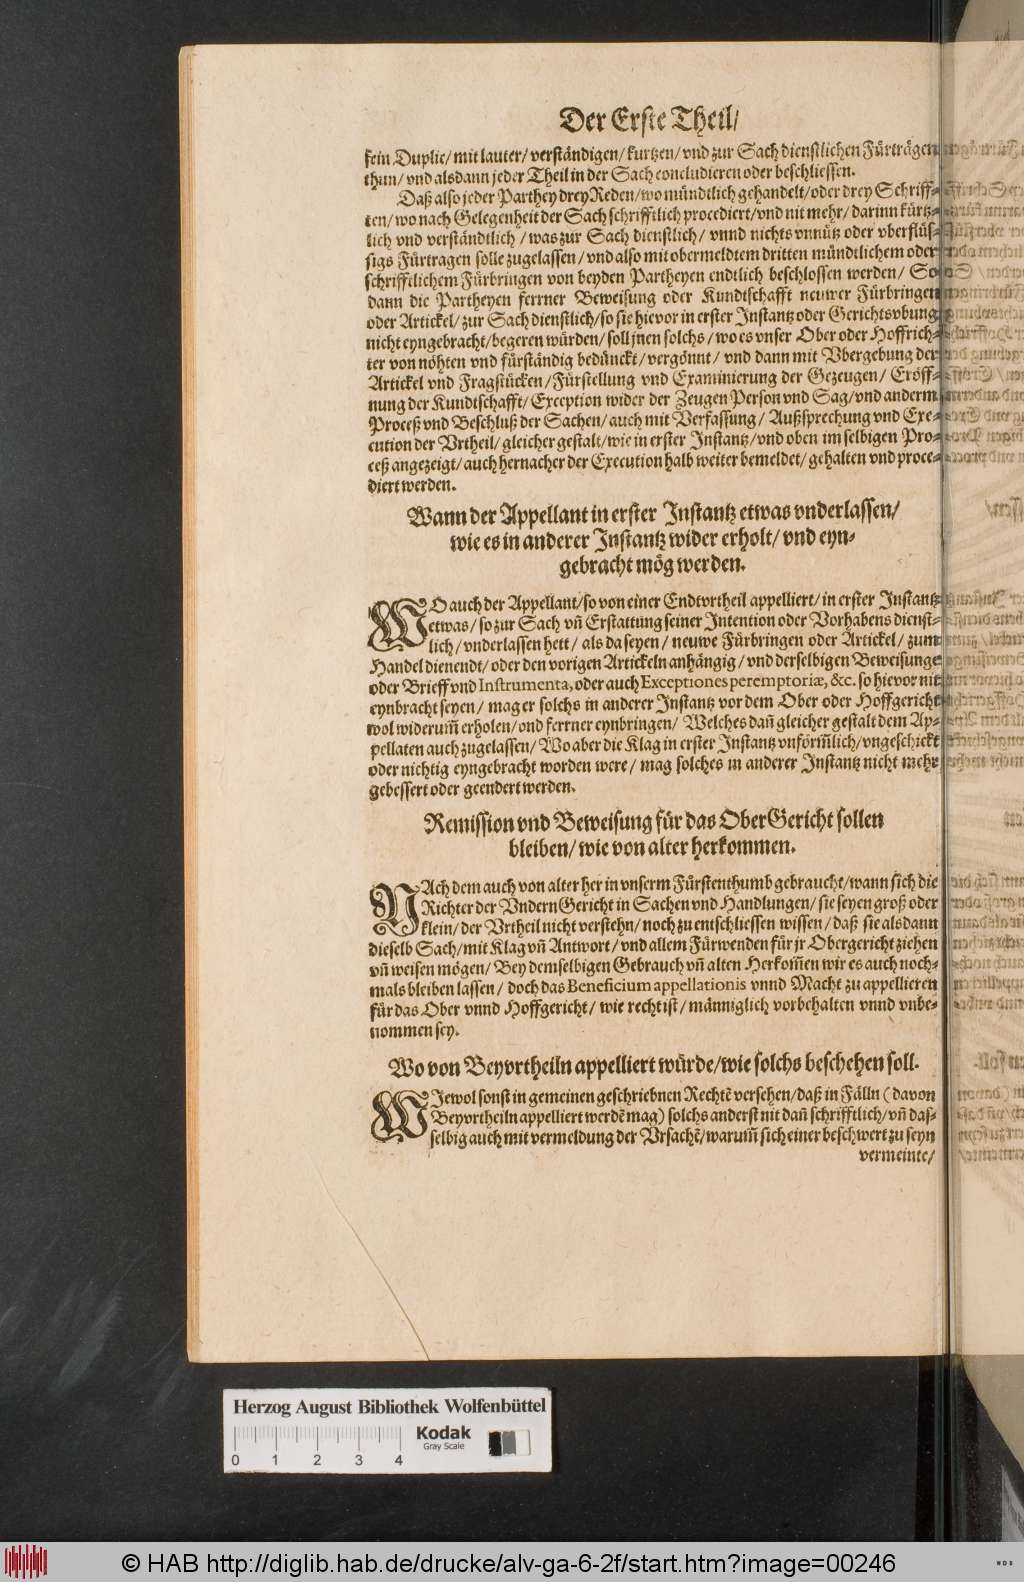 Der Erste Theil/
sein Duplic/ mit lauter/ verständigen/ kurtzen/ vnd zur Sach dienstlichen Fürträgen
thun/ vnd alsdann jeder Theil in der Sach concludieren oder beschliessen.
Daß also jeder Parthey drey Reden/ wo mündtlich gehandelt/ oder drey Schriff-
ten/ wo nach Gelegenheit der Sach schrifftlich procediert/ vnd nit mehr/ darinn kürtz-
lich vnd verständtlich / was zur Sach dienstlich/ vnnd nichts vnnütz oder vberflüs-
sigs Fürtragen solle zugelassen/ vnd also mit obermeldtem dritten mündtlichem oder
schrifftlichem Fürbringen von beyden Partheyen endtlich beschlossen werden/ So
dann die Partheyen ferrner Beweisung oder Kundtschafft neuwer Fürbringen
oder Artickel/ zur Sach dienstlich/ so sie hievor in erster Instantz oder Gerichtsvbung
nicht eyngebracht/ begeren würden/ soll jnen solchs/ wo es vnser Ober oder Hoffrich-
ter von nöhten vnd fürständig bedünckt/ vergönnt/ vnd dann mit Vbergebung der
Artickel vnd Fragstücken/ Fürstellung vnd Examinierung der Gezeugen/ Eröff-
nung der Kundtschafft/ Exception wider der Zeugen Person vnd Sag/ vnd anderm
Proceß vnd Beschluß der Sachen/ auch mit Verfassung/ Außsprechung vnd Exe-
cution der Vrtheil/ gleicher gestalt/ wie in erster Instantz/ vnd oben im selbigen Pro-
ceß angezeigt/ auch hernacher der Execution halb weiter bemeldet/ gehalten vnd proce-
diert werden.
Wann der Appellant in erster Instantz etwas vnderlassen/
wie es in anderer Instantz wider erholt/ vnd eyn-
gebracht mög werden.
WO auch der Appellant/ so von einer Endtvrtheil appelliert/ in erster Instantz
etwas/ so zur Sach vn̄ Erstattung seiner Intention oder Vorhabens dienst-
lich/ vnderlassen hett/ als da seyen/ neuwe Fürbringen oder Artickel/ zum
Handel dienendt/ oder den vorigen Artickeln anhängig/ vnd derselbigen Beweisunge
oder Brieff vnd Instrumenta, oder auch Exceptiones peremptoriæ, &c. so hievor nit
eynbracht seyen/ mag er solchs in anderer Instantz vor dem Ober oder Hoffgericht
wol widerum̄ erholen/ vnd ferrner eynbringen/ Welches dan̄ gleicher gestalt dem Ap-
pellaten auch zugelassen/ Wo aber die Klag in erster Instantz vnförm̄lich/ vngeschickt
oder nichtig eyngebracht worden were/ mag solches in anderer Instantz nicht mehr
gebessert oder geendert werden.
Remission vnd Beweisung für das OberGericht sollen
bleiben/ wie von alter herkommen.
NAch dem auch von alter her in vnserm Fürstenthumb gebraucht/ wann sich die
Richter der Vndern Gericht in Sachen vnd Handlungen/ sie seyen groß oder
klein/ der Vrtheil nicht verstehn/ noch zu entschliessen wissen/ daß sie alsdann
dieselb Sach/ mit Klag vn̄ Antwort/ vnd allem Fürwenden für jr Obergericht ziehen
vn̄ weisen mögen/ Bey demselbigen Gebrauch vn̄ alten Herkom̄en wir es auch noch-
mals bleiben lassen/ doch das Beneficium appellationis vnnd Macht zu appellieren
für das Ober vnnd Hoffgericht/ wie recht ist/ männiglich vorbehalten vnnd vnbe-
nommen sey.
Wo von Beyvrtheiln appelliert würde/ wie solchs beschehen soll.
WJewol sonst in gemeinen geschriebnen Rechtē versehen/ daß in Fälln (davon
Beyvrtheiln appelliert werdē mag) solchs anderst nit dan̄ schrifftlich/ vn̄ das-
selbig auch mit vermeldung der Vrsachē/ warum̄ sich einer beschwert zu seyn
vermeinte/
Herzog August Bibliothek Wolfenbüttel
Kodak
Gray Scale
0 1 2 3 4
© HAB http://diglib.hab.de/drucke/alv-ga-6-2f/start.htm?image=00246